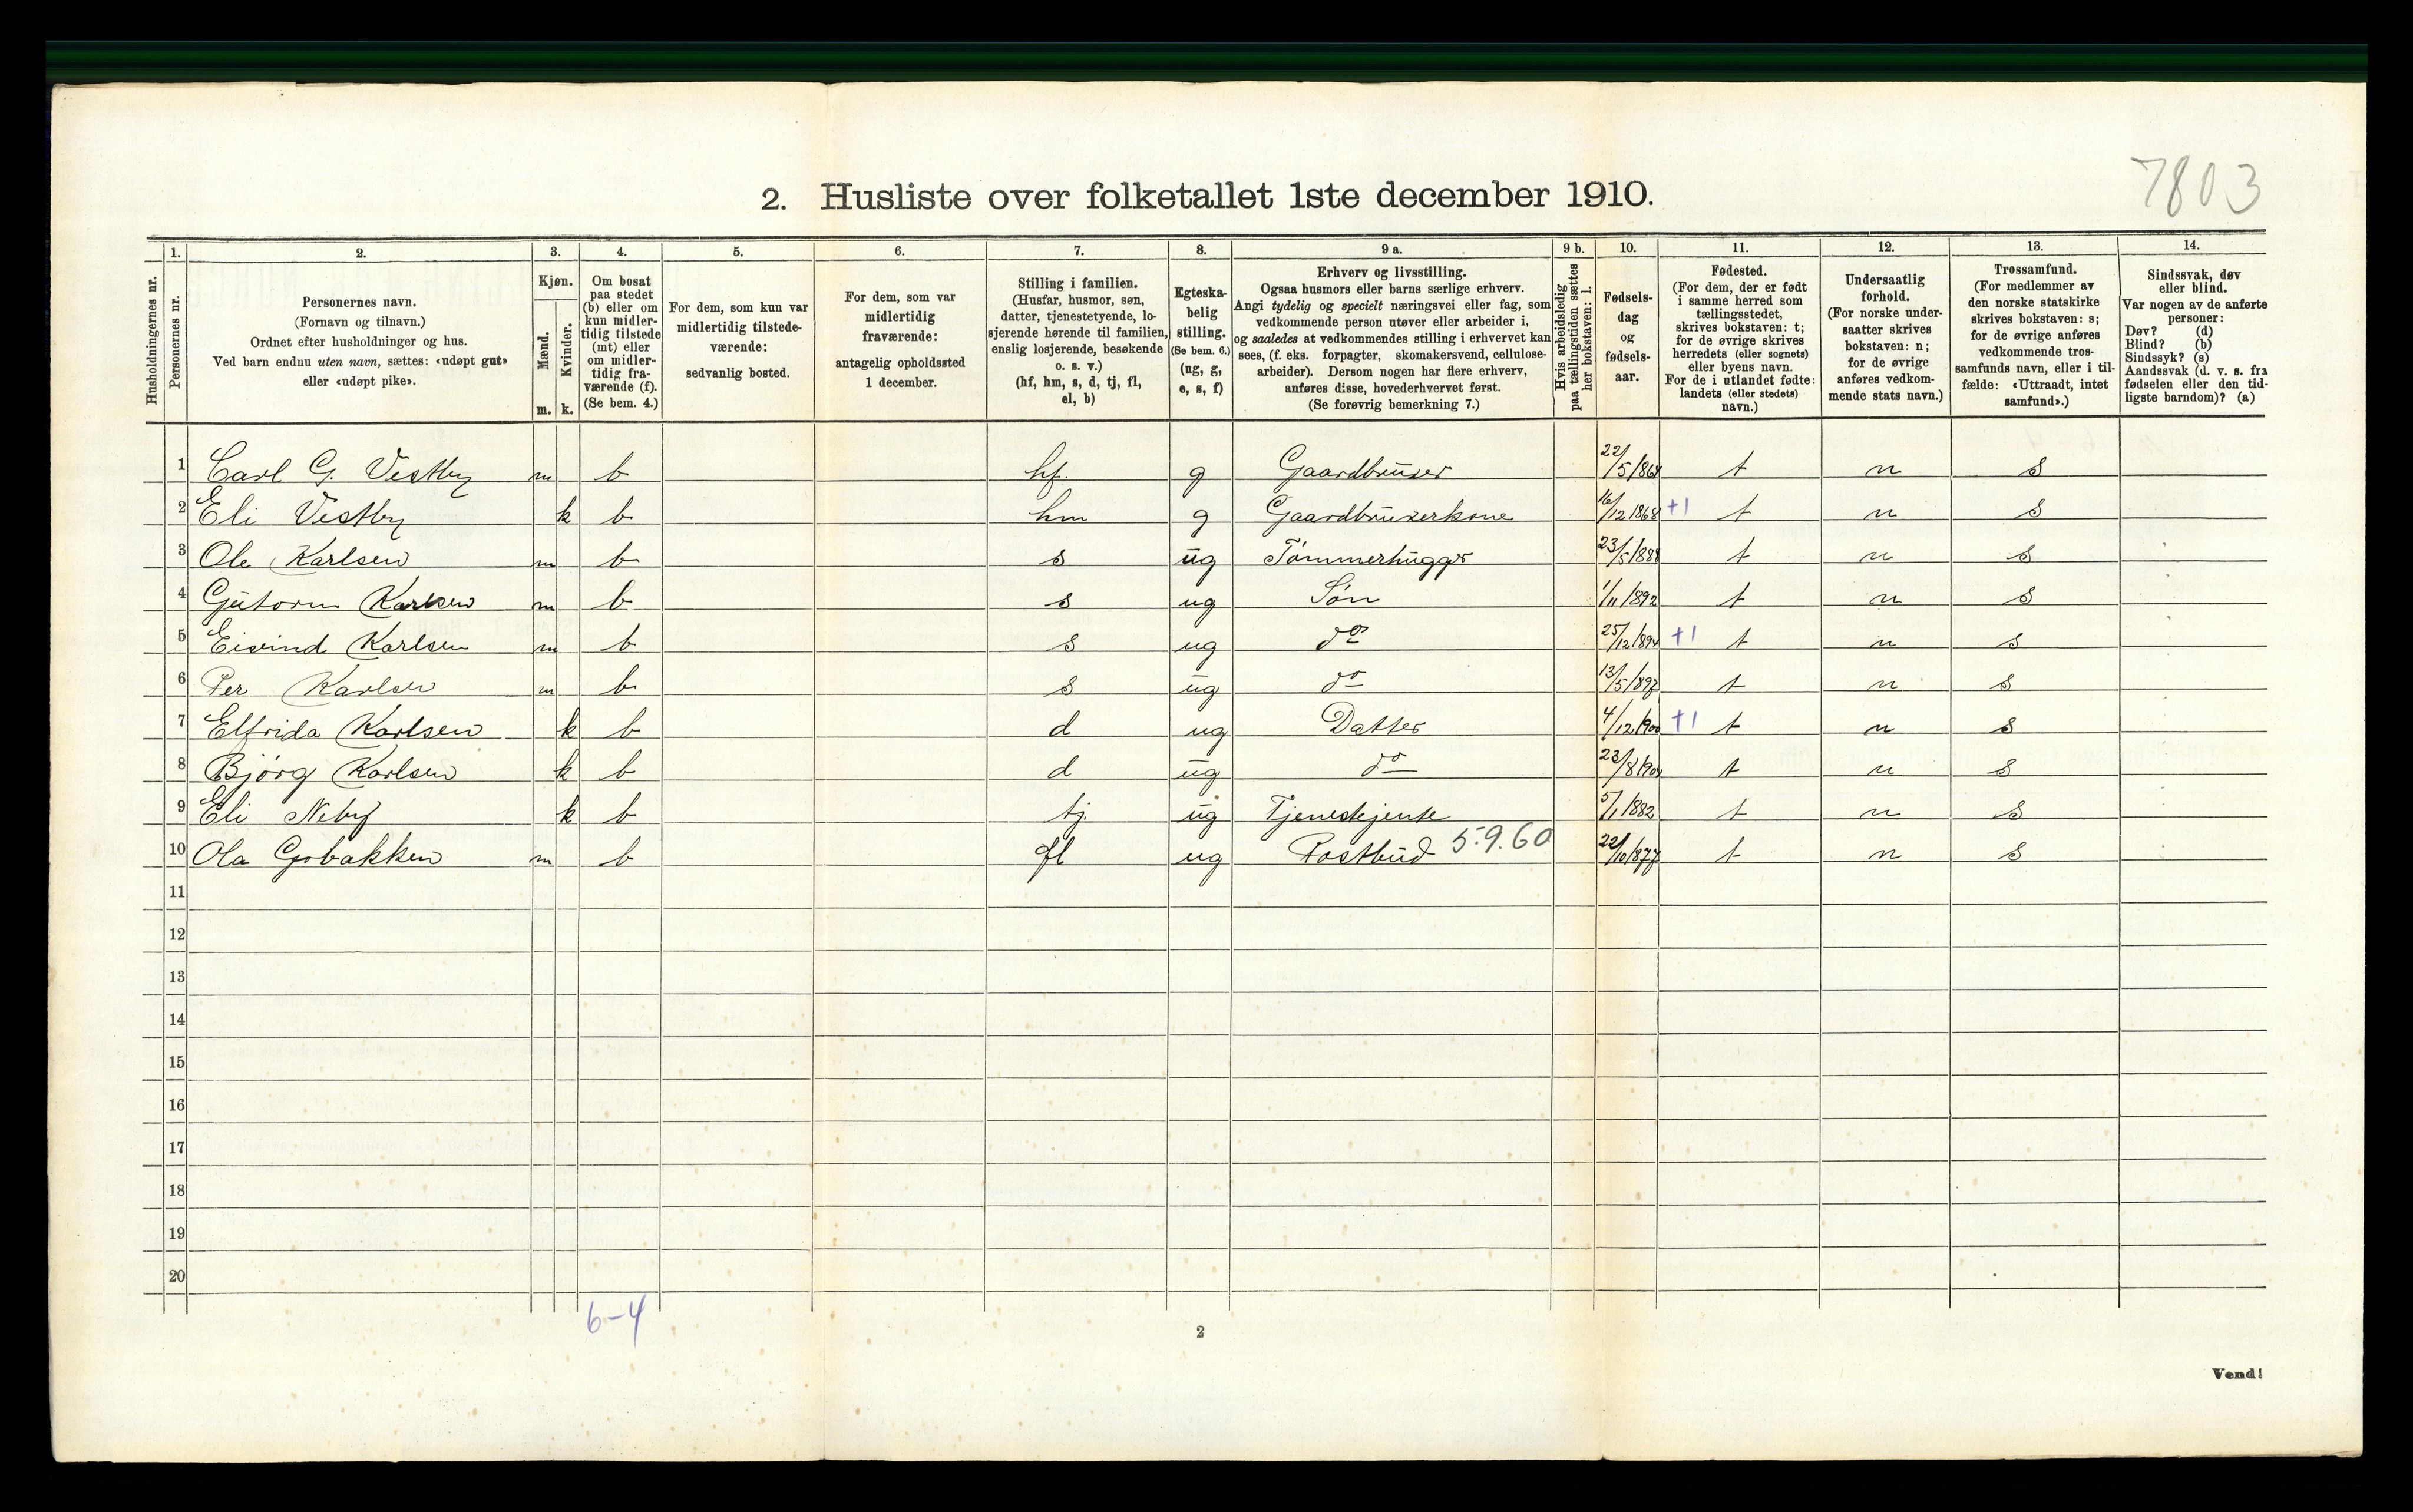 7803
2. Husliste over folketallet 1ste december 1910.
Husholdningernes nr.
1. Personernes nr.
2. Personernes navn.
(Fornavn og tilnavn.)
Ordnet efter husholdninger og hus.
Ved barn endnu uten navn, sættes: «udøpt gut»
eller «udøpt pike».
3. Kjøn.
Mænd. m.
Kvinder. k.
4. Om bosat
paa stedet
(b) eller om
kun midler-
tidig tilstede
(mt) eller
om midler-
tidig fra-
værende (f).
(Se bem. 4.)
5. For dem, som kun var
midlertidig tilstede-
værende:
sedvanlig bosted.
6. For dem, som var
midlertidig
fraværende:
antagelig opholdssted
1 december.
7. Stilling i familien.
(Husfar, husmor, søn,
datter, tjenestetyende, lo-
sjerende hørende til familien,
enslig losjerende, besøkende
o. s. v.)
(hf, hm, s, d, tj, fl,
el, b)
8. Egteska-
belig
stilling.
(Se bem. 6.)
(ug, g,
e, s, f)
9 a. Erhverv og livsstilling.
Ogsaa husmors eller barns særlige erhverv.
Angi tydelig og specielt næringsvei eller fag, som
vedkommende person utøver eller arbeider i,
og saaledes at vedkommendes stilling i erhvervet kan
sees, (f. eks. forpagter, skomakersvend, cellulose-
arbeider). Dersom nogen har flere erhverv,
anføres disse, hovederhvervet først.
(Se forøvrig bemerkning 7.)
9 b. Hvis arbeidsledig
paa tællingstiden sættes
her bokstaven: l.
10. Fødsels-
dag
og
fødsels-
aar.
11. Fødested.
(For dem, der er født
i samme herred som
tællingsstedet,
skrives bokstaven: t;
for de øvrige skrives
herredets (eller sognets)
eller byens navn.
For de i utlandet fødte:
landets (eller stedets)
navn.)
12. Undersaatlig
forhold.
(For norske under-
saatter skrives
bokstaven: n;
for de øvrige
anføres vedkom-
mende stats navn.)
13. Trossamfund.
(For medlemmer av
den norske statskirke
skrives bokstaven: s;
for de øvrige anføres
vedkommende tros-
samfunds navn, eller i til-
fælde: «Uttraadt, intet
samfund».)
14. Sindssvak, døv
eller blind.
Var nogen av de anførte
personer:
Døv? (d)
Blind? (b)
Sindssyk? (s)
Aandssvak (d. v. s. fra
fødselen eller den tid-
ligste barndom)? (a)
1 Carl G. Vestby m b hf. g Gaardbruker 22/5/864 t n s
2 Eli Vestby k b hm g Gaardbrukerkone 16/12 1868 +1 t n s
3 Ole Karlsen m b s ug Tømmerhugger 23/5/888 t n s
4 Gutorm Karlsen m b s ug Søn 1/11/892 t n s
5 Eivind Karlsen m b s ug do 25/12/894 +1 t n s
6 Per Karlsen m b s ug do 13/5/897 t n s
7 Elfrida Karlsen k b d ug Datter 4/12/900 +1 t n s
8 Bjørg Karlsen k b d ug do 23/8/904 t n s
9 Eli Neby k b tj ug Tjenestejente 5/1/882 t n s
10 Ola Gobakken m b fl ug Postbud 5.9.60 22/10/877 t n s
11
12
13
14
15
16
17
18
19
20
6-4
2
Vend!